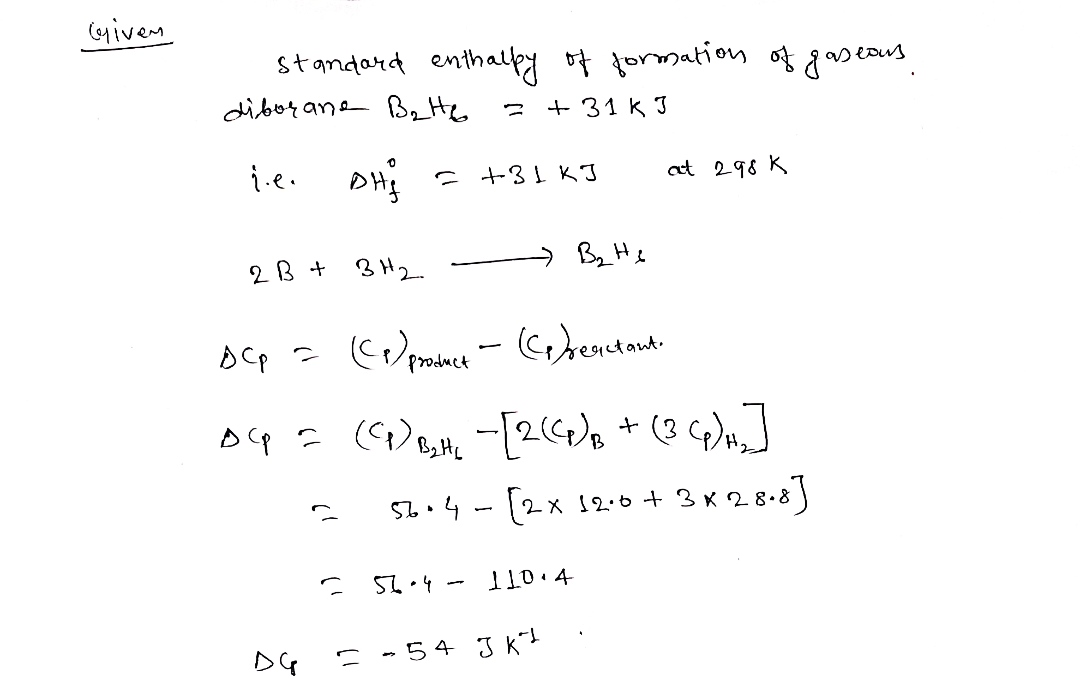 Given
standard enthalpy of formation of gaseous
diborane B₂H₆ = +31 KJ
i.e. ΔH°f = +31 KJ at 298 K
2B + 3H₂ ⟶ B₂H₆
ΔCp = (Cp)product - (Cp)reactant.
ΔCp = (Cp)B₂H₆ - [2(Cp)B + (3 Cp)H₂]
= 56.4 - [2 x 12.0 + 3 x 28.8]
= 56.4 - 110.4
ΔCp = -54 J K⁻¹